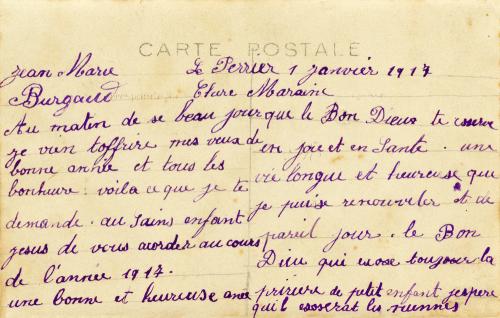 CARTE POSTALE
Jean Marie
Burgaud
Le Perrier 1 janvier 1917
Chere Maraine
Au matin de se beau jour
je vien t'offrire mes veux de
bonne année et tous les
bonhure. voila ce que je te
demande. au sains enfant
jesus de vous acorder au cours
de l'année 1917.
une bonne et heureuse anée
que le Bon Dieus te conserve
en joie et en santé. une
vie longue et heureuse que
je puise renouveler et ce
pareil jour. le Bon
Dieu qui exose toujour la
prirere de petit enfant j'espere
qu'il exoserat les miennes